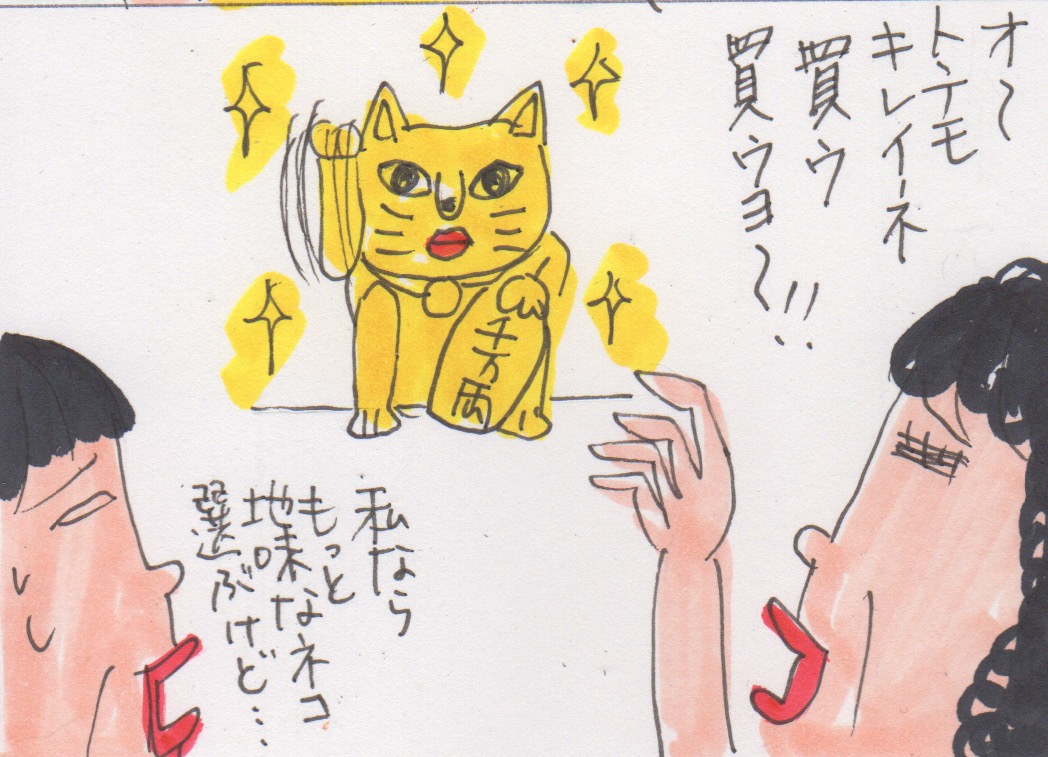 オ〜
トテモ
キレイーネ
買ウ
買ウヨ〜!!
千万両
私なら
もっと
地味なネコ
選ぶけど…